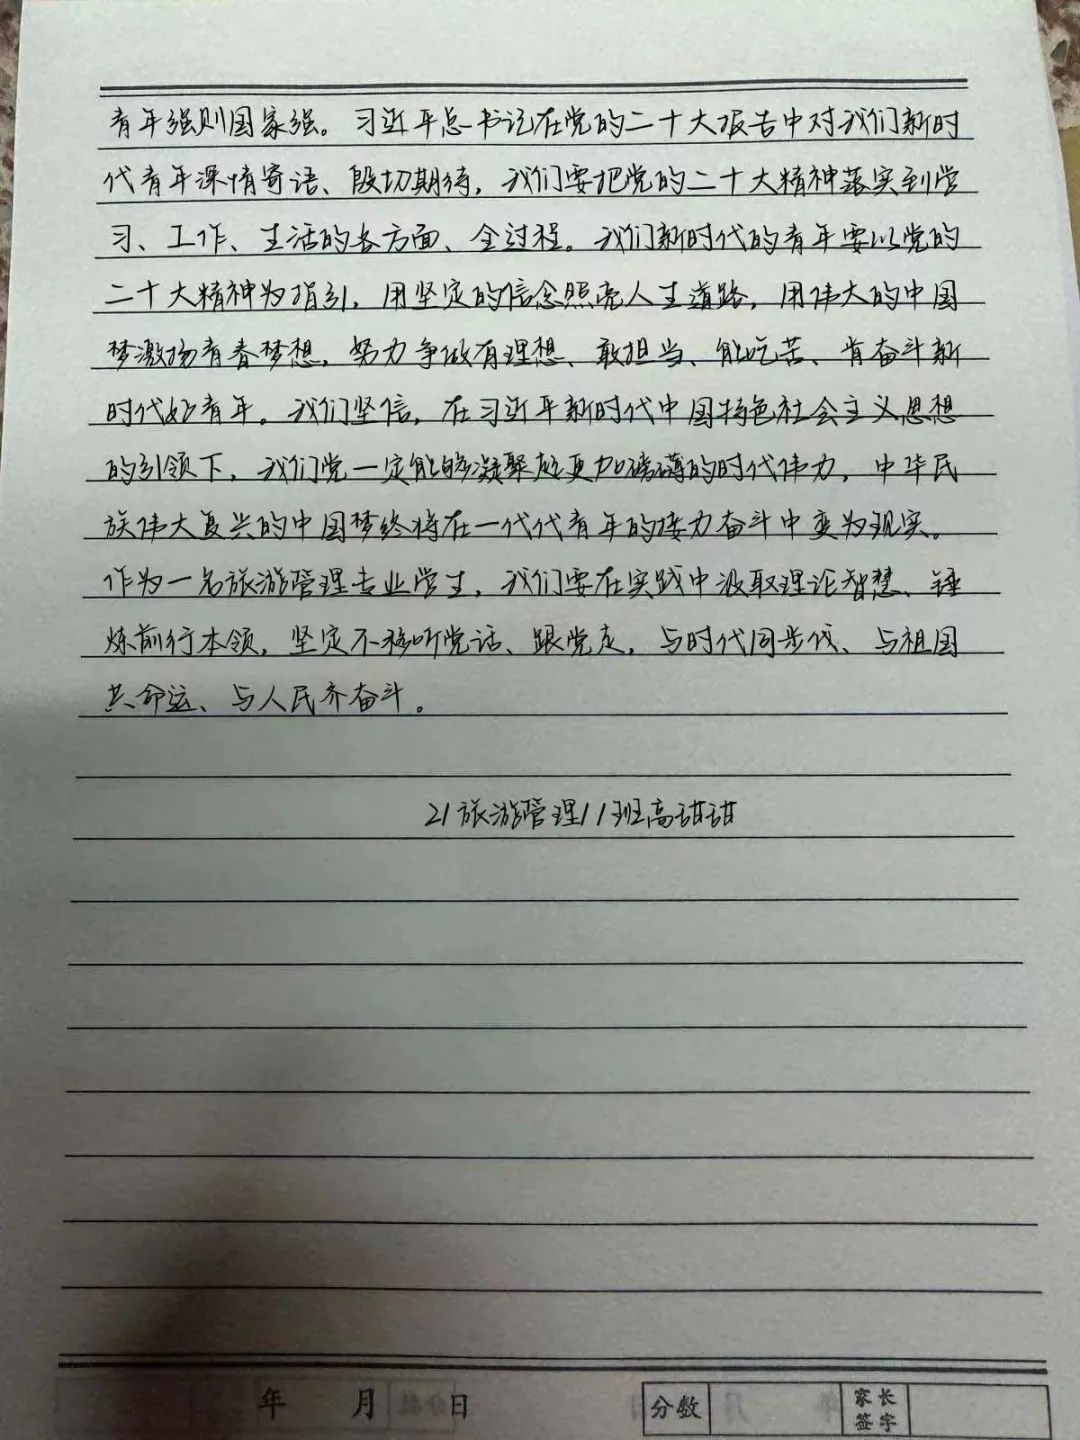 青年强则国家强。习近平总书记在党的二十大报告中对我们新时
代青年深情寄语、殷切期待，我们要把党的二十大精神落实到学
习、工作、生活的各方面、全过程。我们新时代的青年要以党的
二十大精神为指引，用坚定的信念照亮人生道路，用伟大的中国
梦激扬青春梦想，努力争做有理想、敢担当、能吃苦、肯奋斗新
时代好青年。我们坚信，在习近平新时代中国特色社会主义思想
的引领下，我们党一定能够凝聚起更加磅礴的时代伟力，中华民
族伟大复兴的中国梦终将在一代代青年的接力奋斗中变为现实。
作为一名旅游管理专业学生，我们要在实践中汲取理论智慧、锤
炼前行本领，坚定不移听党话、跟党走，与时代同步伐、与祖国
共命运、与人民齐奋斗。
21旅游管理11班高甜甜
年 月 日 分数 家长签字